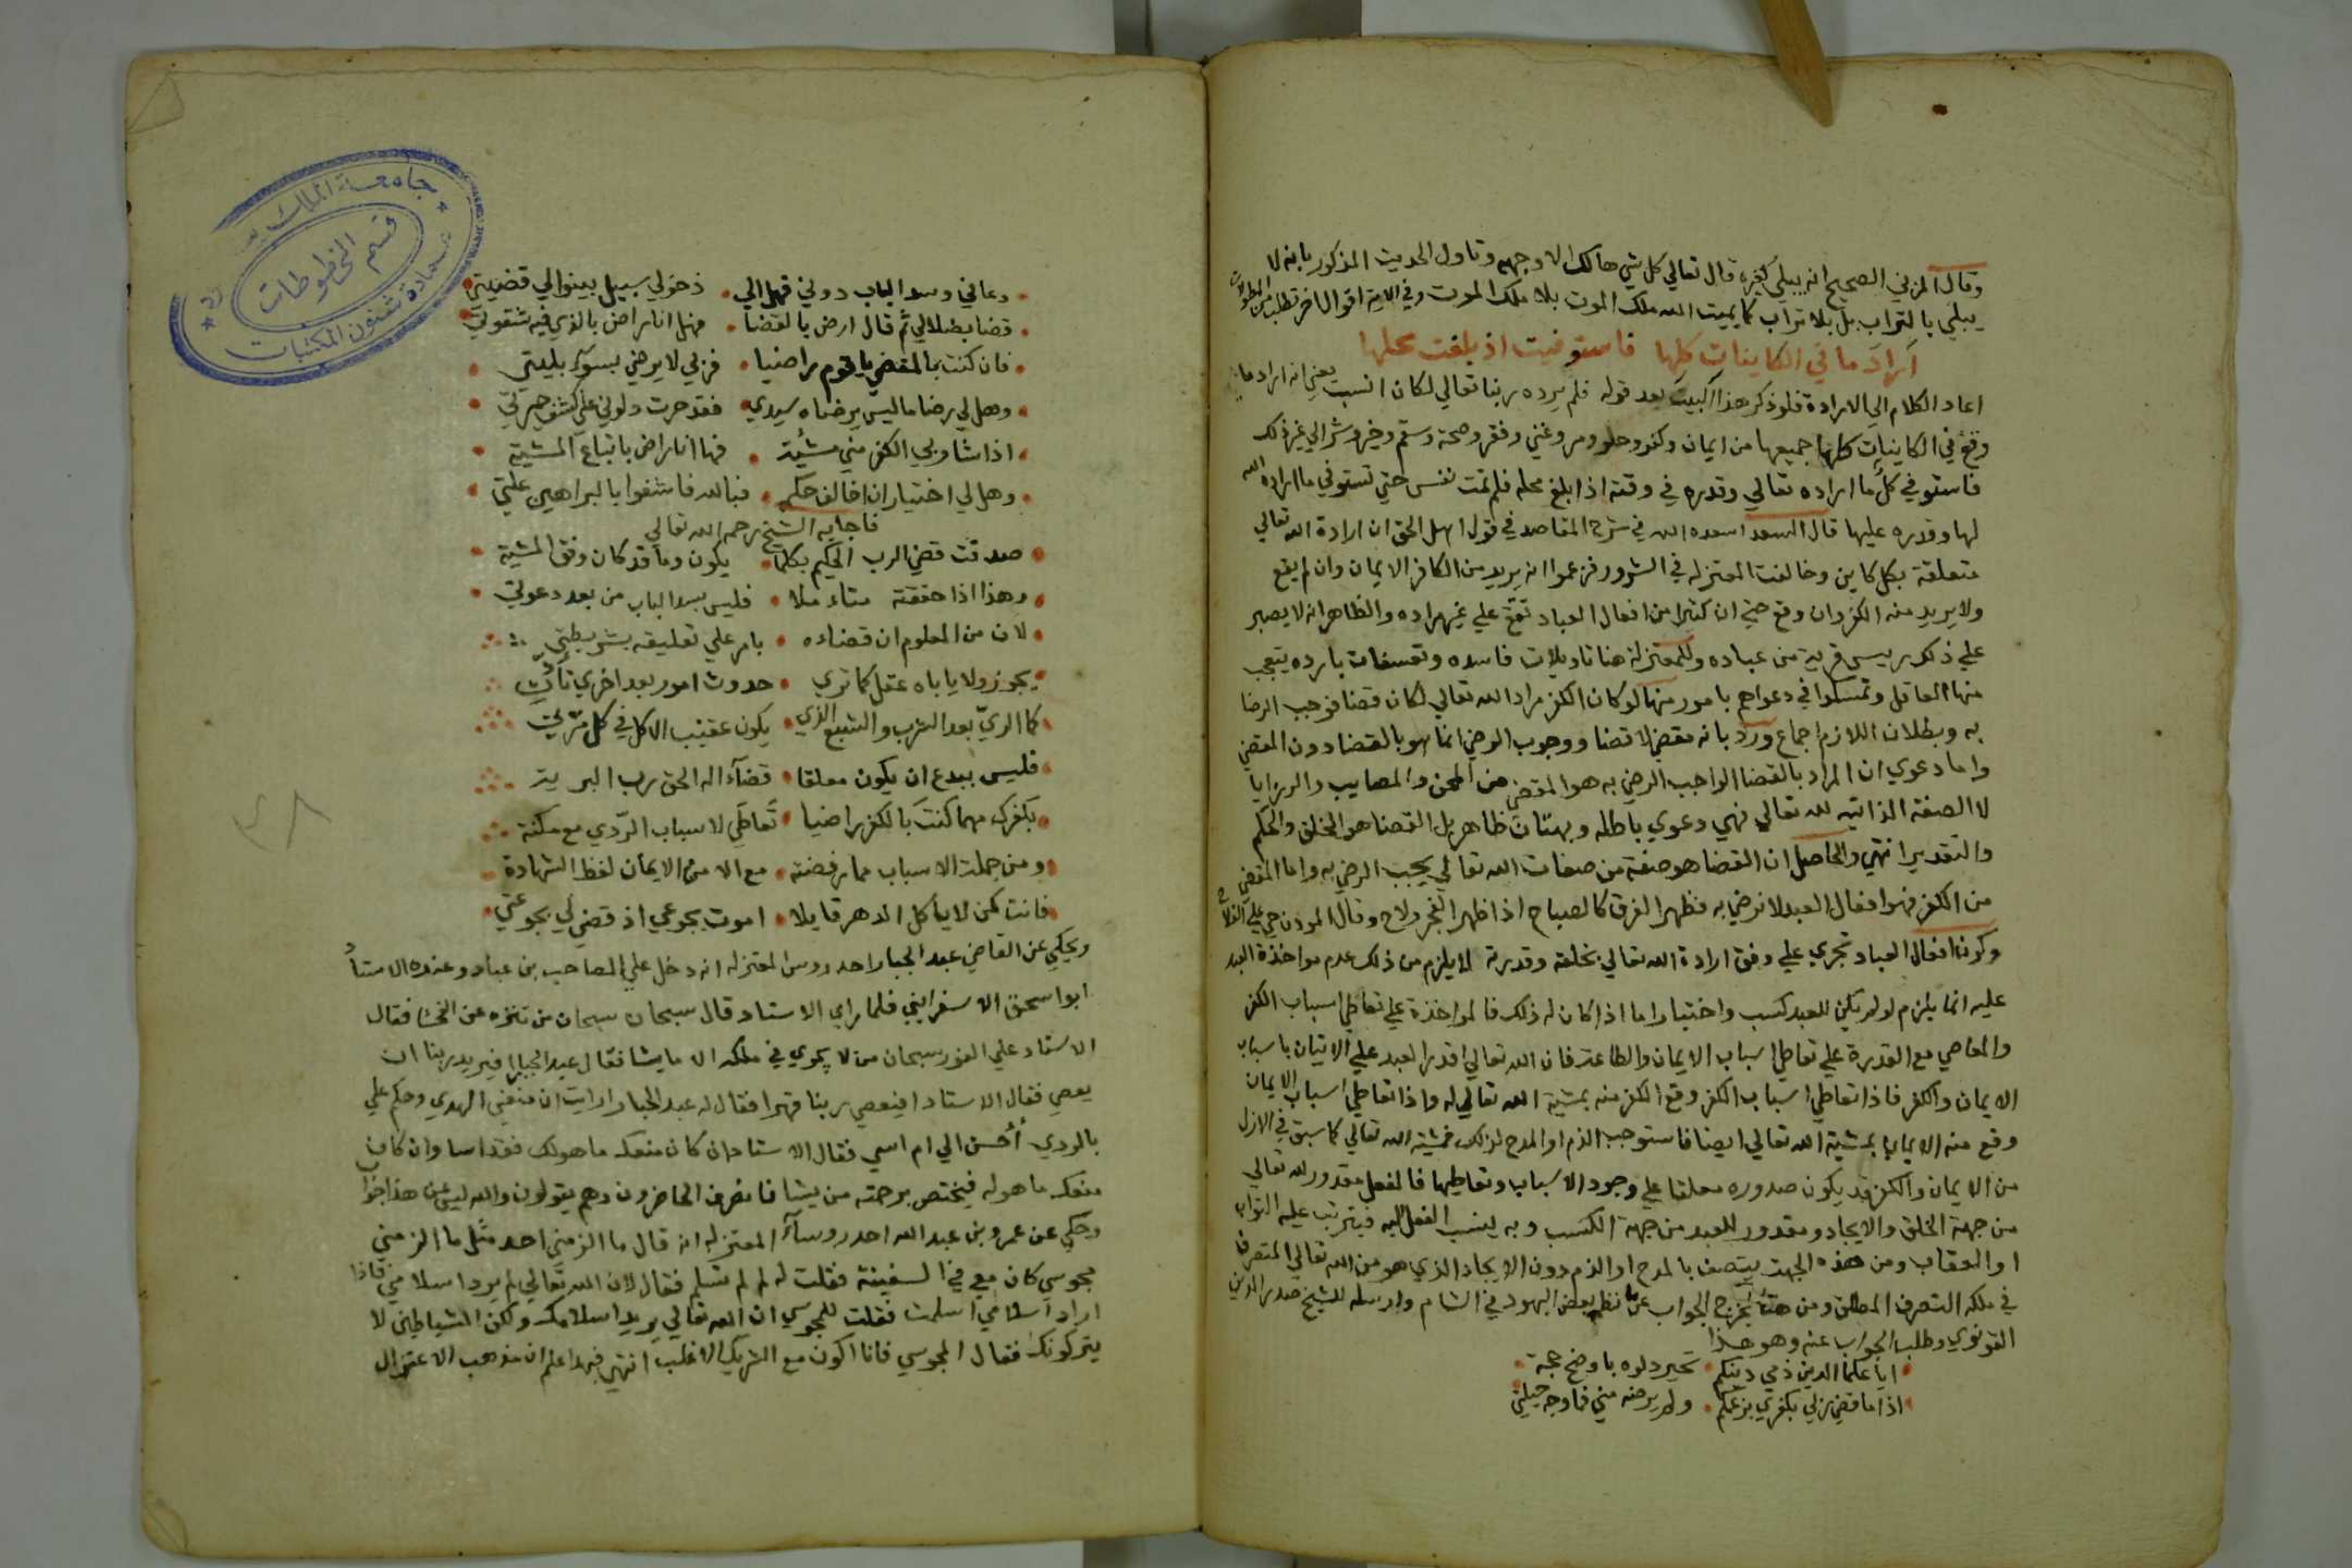 وقال المزني الصحيح انه يبلي كغيره قال تعالي كل شي هالك الا وجهه وتاول الحديث المذكور بانه لا
يبلي بالتراب بل بلا تراب كما يميت الله ملك الموت بلا ملك الموت وفي الاية اقوال اخر تطلب من المطولات
اراد ما في الكاينات كلها فاستوفيت اذ بلغت محلها
اعاد الكلام الي الارادة فلو ذكر هذا البيت بعد قوله فلم يرده ربنا تعالي لكان انسب يعني انه اراد ما
وقع في الكاينات كلها جميعها من ايمان وكفر وحلو ومر وغني وفقر وصحة وسقم وخير وشر الي غير ذلك
فاستوفي كل ما اراده تعالي وقدره في وقته اذا بلغ محله فلم تمت نفس حتي تستوفي ما اراده الله
لها وقدره عليها قال السعد اسعده الله في شرح المقاصد في قول اهل الحق ان ارادة الله تعالي
متعلقة بكل كاين وخالفت المعتزله في الشرور فزعموا انه يريد من الكافر الايمان وان لم يقع
ولا يريد منه الكفر وان وقع حتي ان كثيرا من افعال العباد تقع علي غير مراده والظاهر انه لا يصبر
علي ذلك رييس قرية من عباده وللمعتزلة هنا تاويلات فاسده وتعسفات بارده يتعجب
منها العاقل وتمسكوا في دعواهم بامور منها لو كان الكفر مراد الله تعالي لكان قضا فوجب الرضا
به وبطلان اللازم اجماع ورد بانه مقضي لا قضا ووجوب الرضي انما هو بالقضا دون المقضي
واما دعوي ان المراد بالقضا الواجب الرضي به هو المقضي من المحن والمصايب والرزايا
لا الصفة الذاتيه لله تعالي فهي دعوي باطله وبهتان ظاهر بل القضا هو الخلق والحكم
والتقدير انتهي والحاصل ان القضا هو صفة من صفات الله تعالي يجب الرضي به واما المقضي
من الكفر فهو افعال العبد لا نرضي به فظهر الفرق كالصباح اذا ظهر الفجر ولاح وقال المودن حي علي الفلاح
وكون افعال العباد تجري علي وفق ارادة الله تعالي بخلقه وقدرته لا يلزم من ذلك عدم مواخذة العبد
عليه انما يلزم لو لم يكن للعبد كسب واختيار اما اذا كان له ذلك فالمواخذة علي تعاطي اسباب الكفر
والمعاصي مع القدرة علي تعاطي اسباب الايمان والطاعة فان الله تعالي اقدر العبد علي الاتيان باسباب
الايمان والكفر فاذا تعاطي اسباب الكفر وقع الكفر منه بمشية الله تعالي له واذا تعاطي اسباب الايمان
وقع منه الايمان بمشية الله تعالي ايضا فاستوجب الذم او المدح لذلك فمشية الله تعالي كما سبق في الازل
من الايمان والكفر قد يكون صدوره معلقا علي وجود الاسباب وتعاطيها فالفعل مقدور لله تعالي
من جهة الخلق والايجاد ومقدور للعبد من جهة الكسب وبه ينسب الفعل اليه فيترتب عليه الثواب
او العقاب ومن هذه الجهة يتصف بالمدح او الذم دون الايجاد الذي هو من الله تعالي المتصرف
في ملكه التصرف المطلق ومن هنا يخرج الجواب عن ما نظم بعض اليهود في الشام وارسله للشيخ صدر الدين
القونوي وطلب الجواب عنه وهو هذا
ايا علما الدين ذمي دينكم تحير دلوه باوضح حجة
اذا ما قضي ربي بكفري بزعمكم ولم يرضه مني فما وجه حيلتي
دعاني وسد الباب دوني فهل الي دخولي سبيل بينوا لي قضيتي
قضا بضلالي ثم قال ارض بالقضا فهل انا راض بالذي فيه شقوتي
فان كنت بالمقضي يا قوم راضيا فربي لا يرضي بسوء بليتي
وهل لي رضا ما ليس يرضاه سيدي فقد حرت دلوني علي كشف حيرتي
اذا شا ربي الكفر مني مشية فها انا راض باتباع المشية
وهل لي اختيار ان اخالف حكمه فبالله فاشفوا بالبراهين علتي
فاجابه الشيخ رحمه الله تعالي
صدقت قضي الرب الحكيم بكلما يكون وما قد كان وفق المشية
وهذا اذا حققته متاملا فليس بسد الباب من بعد دعوتي
لان من المعلوم ان قضاءه بامر علي تعليقه بشريطتي
يجوز ولا ياباه عقل كما تري حدوث امور بعد اخري تادت
كما الري بعد الشرب والشبع الذي يكون عقيب الاكل في كل مرتي
فليس ببدع ان يكون معلقا قضاء اله الحق رب البرية
بكفرك مهما كنت بالكفر راضيا تعاطي لاسباب الردي مع مكنة
ومن جملة الاسباب مما رفضته مع الامن الايمان لفظ الشهادة
فانت كمن لا ياكل الدهر قايلا اموت بجوعي اذ قضي لي بجوعتي
ويحكي عن القاضي عبد الجبار احد روس المعتزله انه دخل علي الصاحب بن عباد وعنده الاستاد
ابو اسحق الاسفرايني فلما راي الاستاد قال سبحان سبحان من تنزه عن الفحشا فقال
الاستاد علي الفور سبحان من لا يجري في ملكه الا ما يشا فقال عبد الجبار افيريد ربنا ان
يعصي فقال الاستاد افيعصي ربنا قهرا فقال له عبد الجبار ارايت ان منعني الهدي وحكم علي
بالردي أحسن الي ام اسي فقال الاستاد ان كان منعك ما هو لك فقد اسا وان كان
منعك ما هو له فيختص برحمته من يشا فانصرف الحاضرون وهم يقولون والله ليس عن هذا جواب
وحكي عن عمرو بن عبد الله احد روساء المعتزله انه قال ما الزمني احد مثل ما الزمني
مجوسي كان معي في السفينة فقلت له لم لم تسلم فقال لان الله تعالي لم يرد اسلامي فاذا
اراد اسلامي اسلمت فقلت للمجوسي ان الله تعالي يريد اسلامك ولكن الشياطين لا
يتركونك فقال المجوسي فانا اكون مع الشريك الاغلب انتهي فبهذا علم ان مذهب الاعتزال
٤٨
قسم المخطوطات
عمادة شئون المكتبات